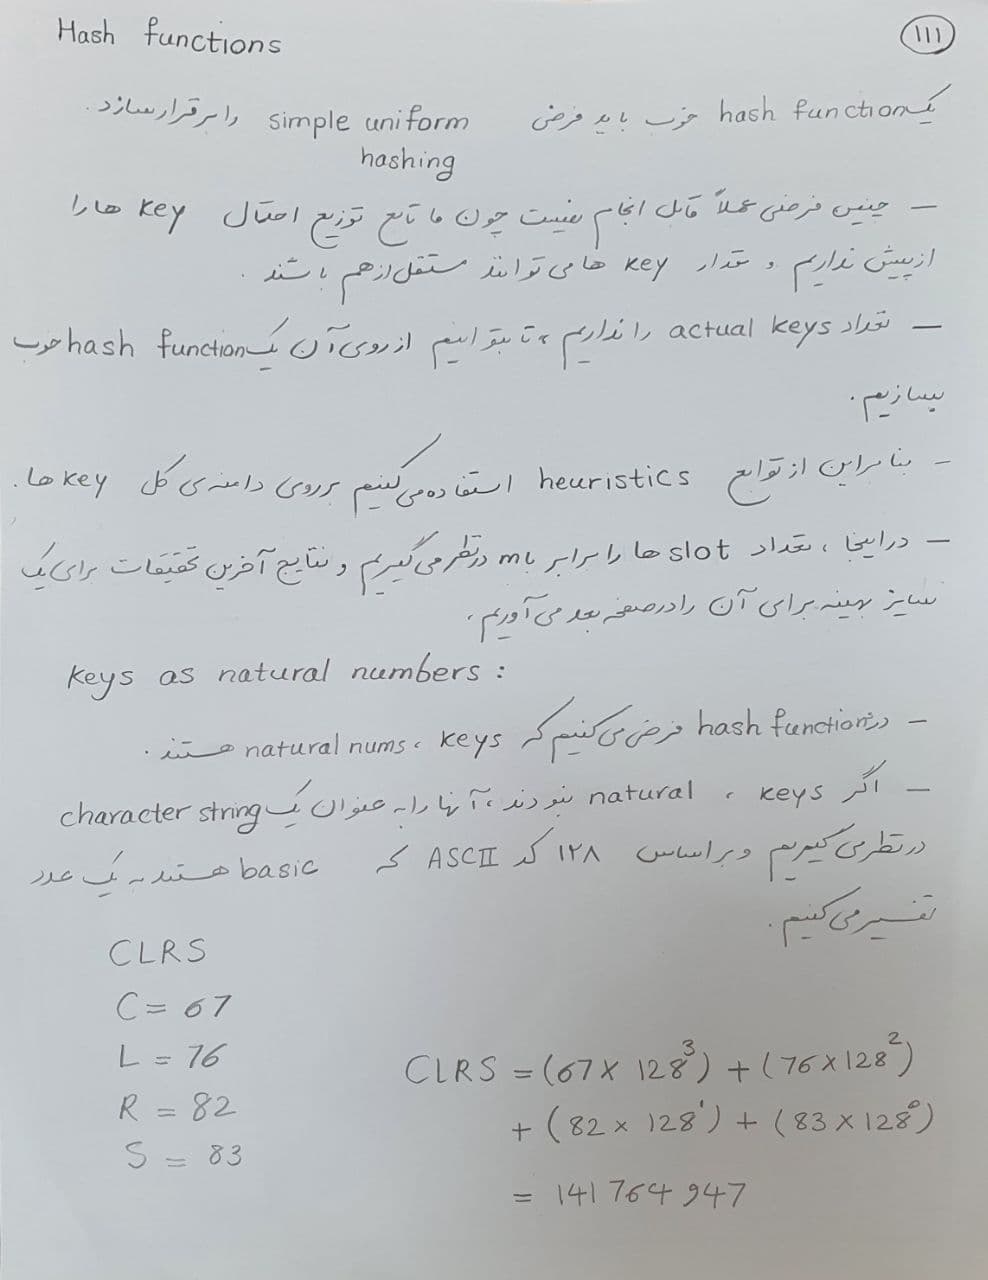 Hash functions
۱۱۱
یک hash function خوب باید فرض simple uniform را برقرار سازد.
hashing
– چنین فرضی عملاً قابل انجام نیست چون ما تابع توزیع احتمال key ها را
از پیش نداریم و مقدار key ها می توانند مستقل از هم باشند.
– تعداد actual keys را نداریم، تا بتوانیم از روی آن یک hash function خوب
بسازیم.
– بنابراین از توابع heuristics استفاده می کنیم بر روی دامنه ی کل key ها.
– در اینجا، تعداد slot ها را برابر با m در نظر می گیریم و نتایج آخرین تحقیقات برای یک
سایز بهینه برای آن را در صفحه بعد می آوریم.
keys as natural numbers :
– در hash function فرض می کنیم که keys ، natural nums هستند.
– اگر keys ، natural نبودند، آنها را به عنوان یک character string
در نظر می گیریم و بر اساس ۱۲۸ کد ASCII که basic هستند به یک عدد
تفسیر می کنیم.
CLRS
C = 67
L = 76
R = 82
S = 83
CLRS = (67 × 128³) + (76 × 128²)
+ (82 × 128¹) + (83 × 128⁰)
= 141 764 947